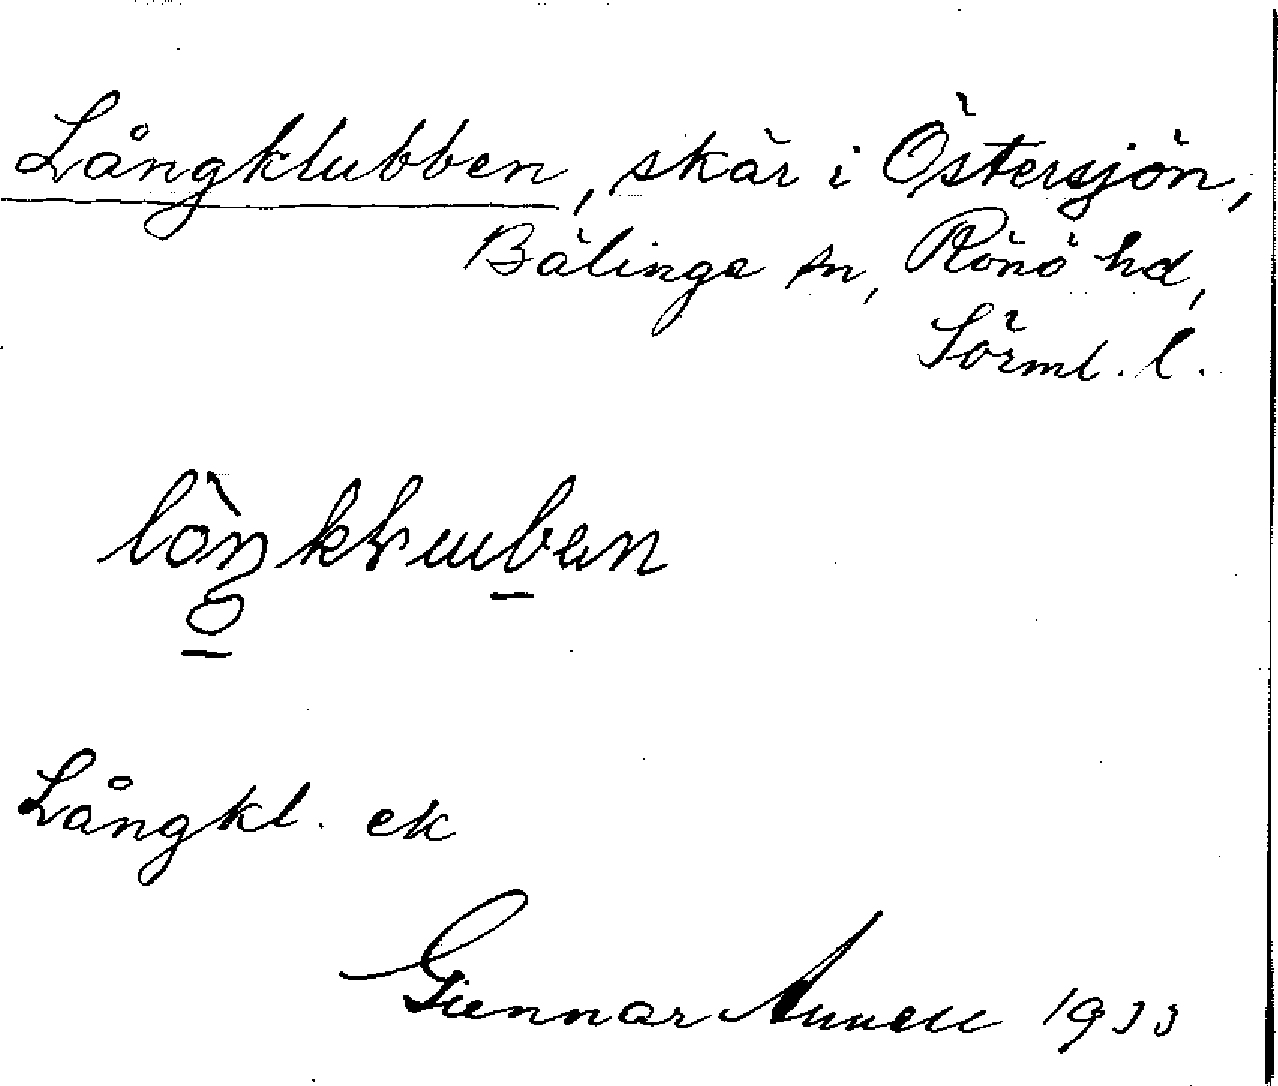 Långklubben, skär i Östersjön,
Bälinge sn, Rönö hd,
Sörml. l.
Långkl. ek
Gunnar Annell 1933